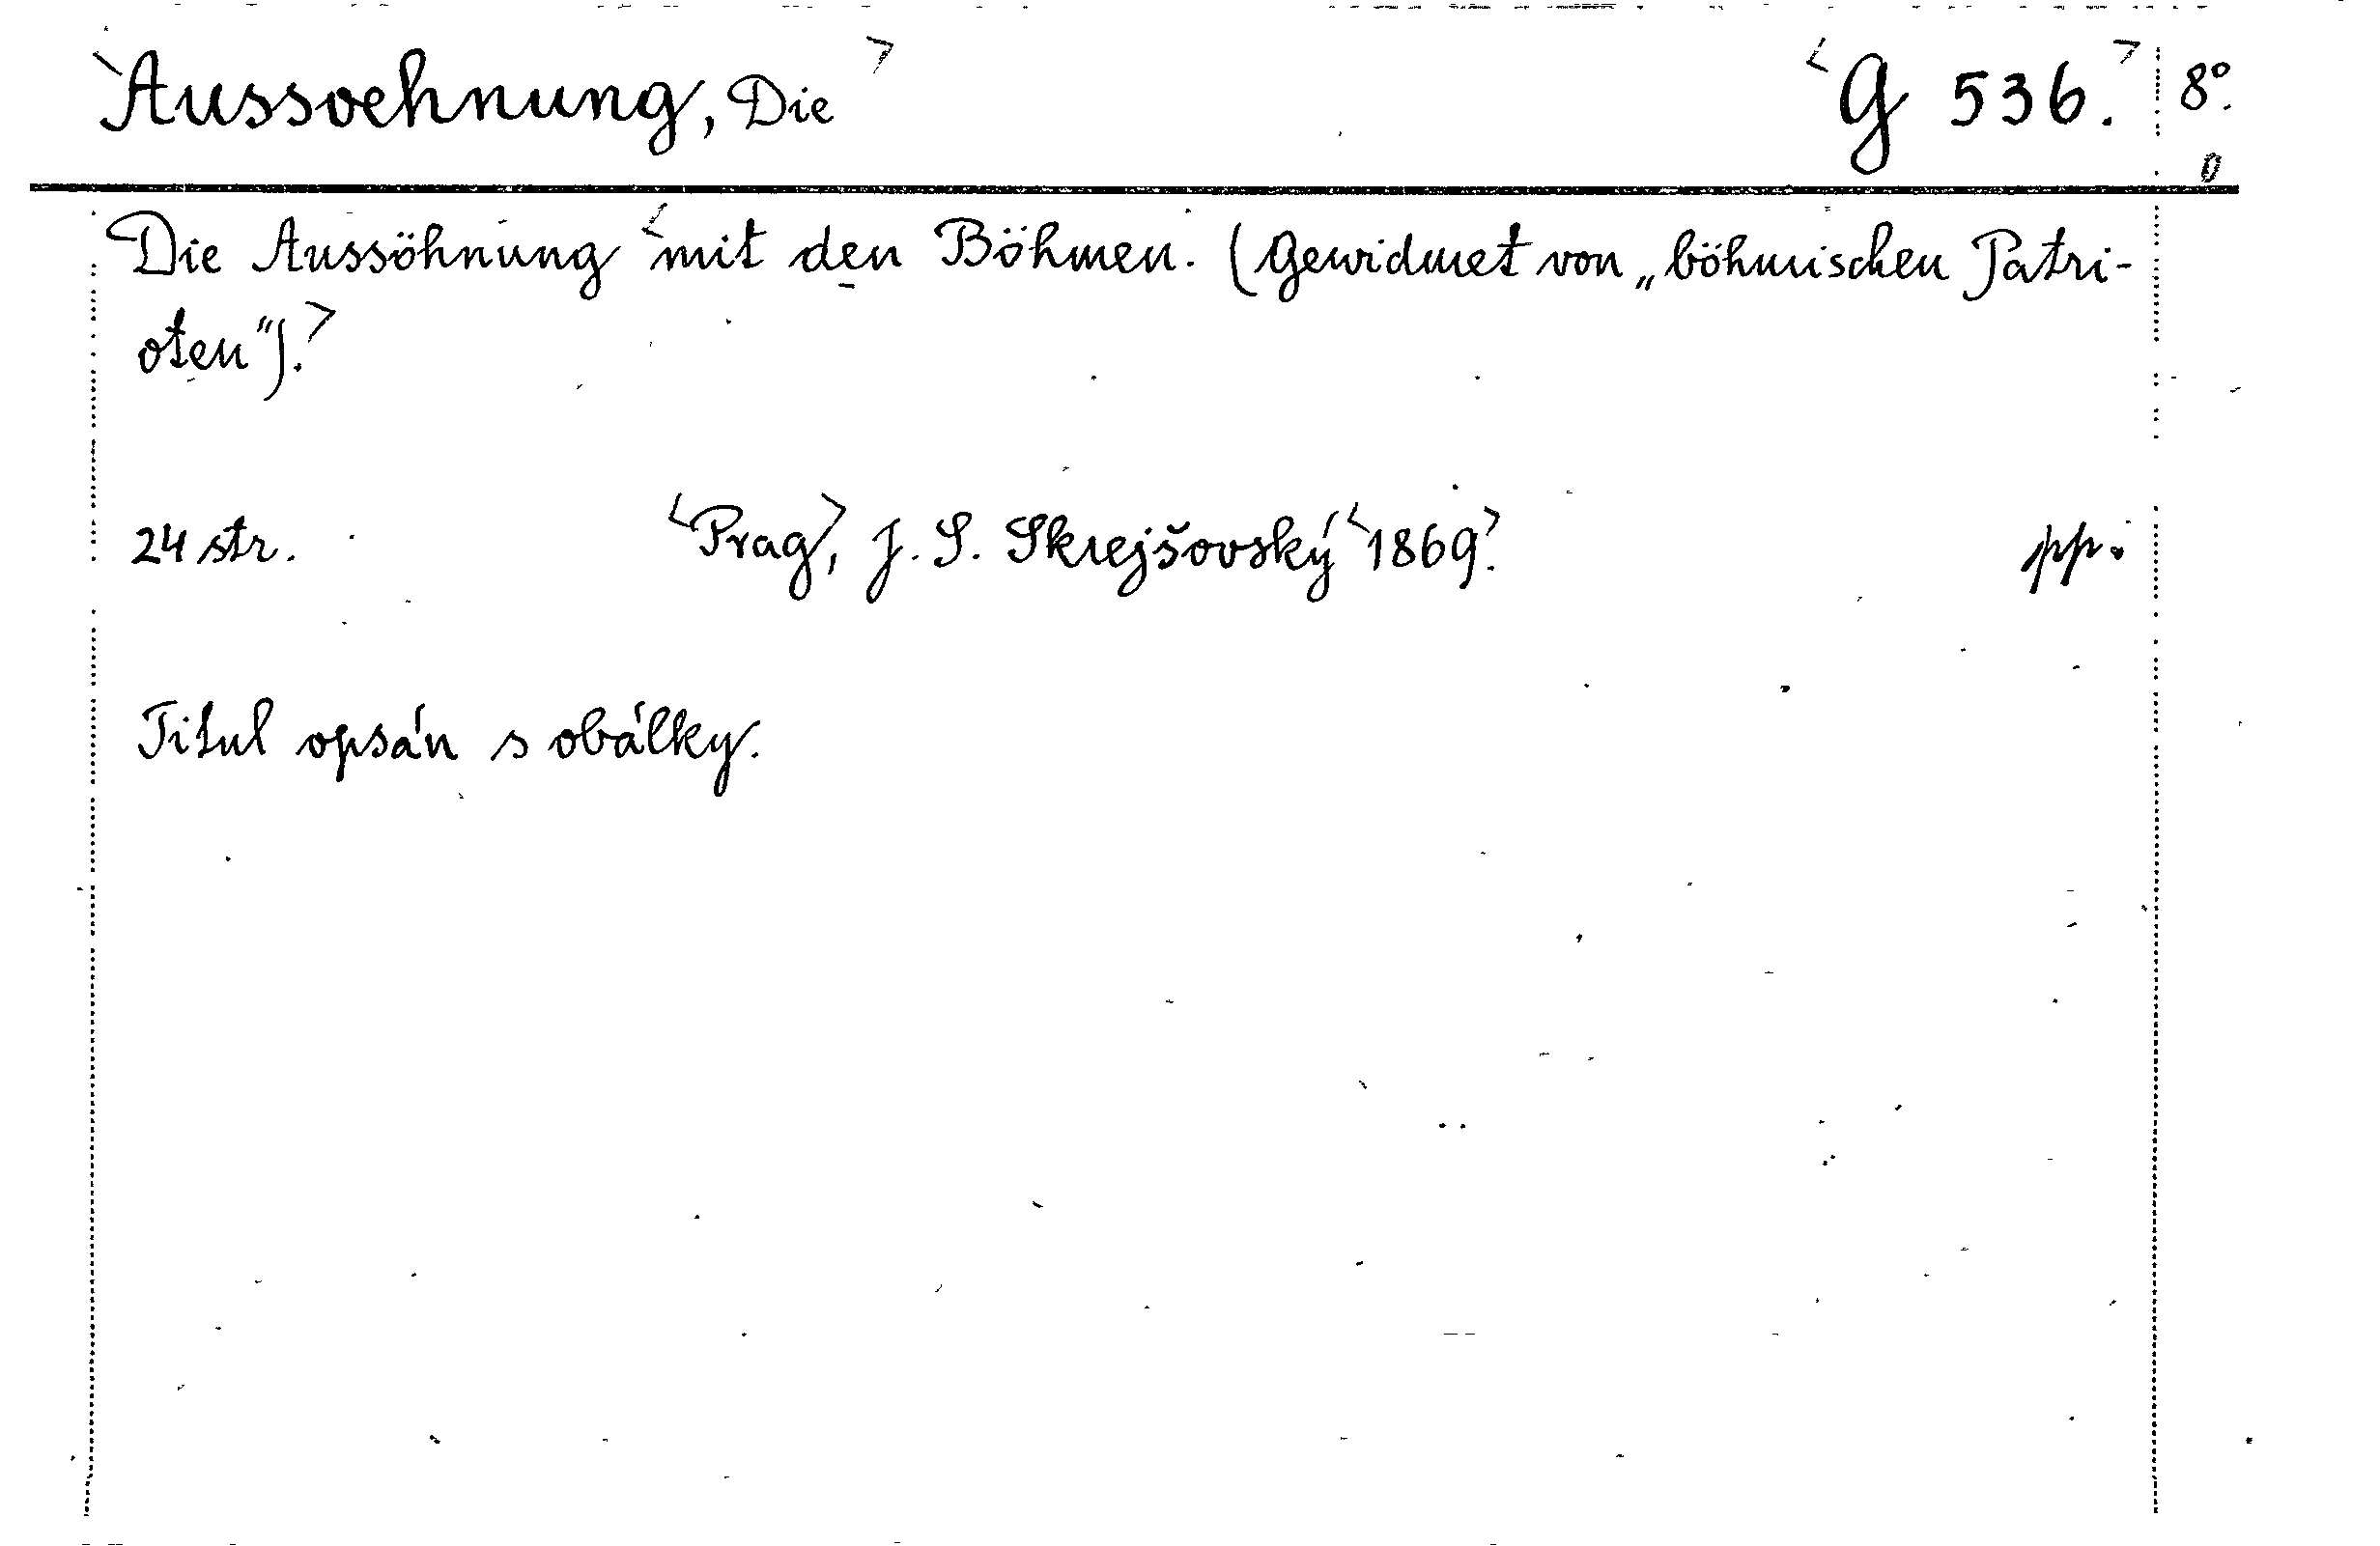 Aussoehnung, Die G 536. 8°.
Die Aussöhnung mit den Böhmen. (Gewidmet von „böhmischen Patri-
oten").
24 str. Prag, J. S. Skrejšovský 1869. pp.
Titul opsán s obálky.